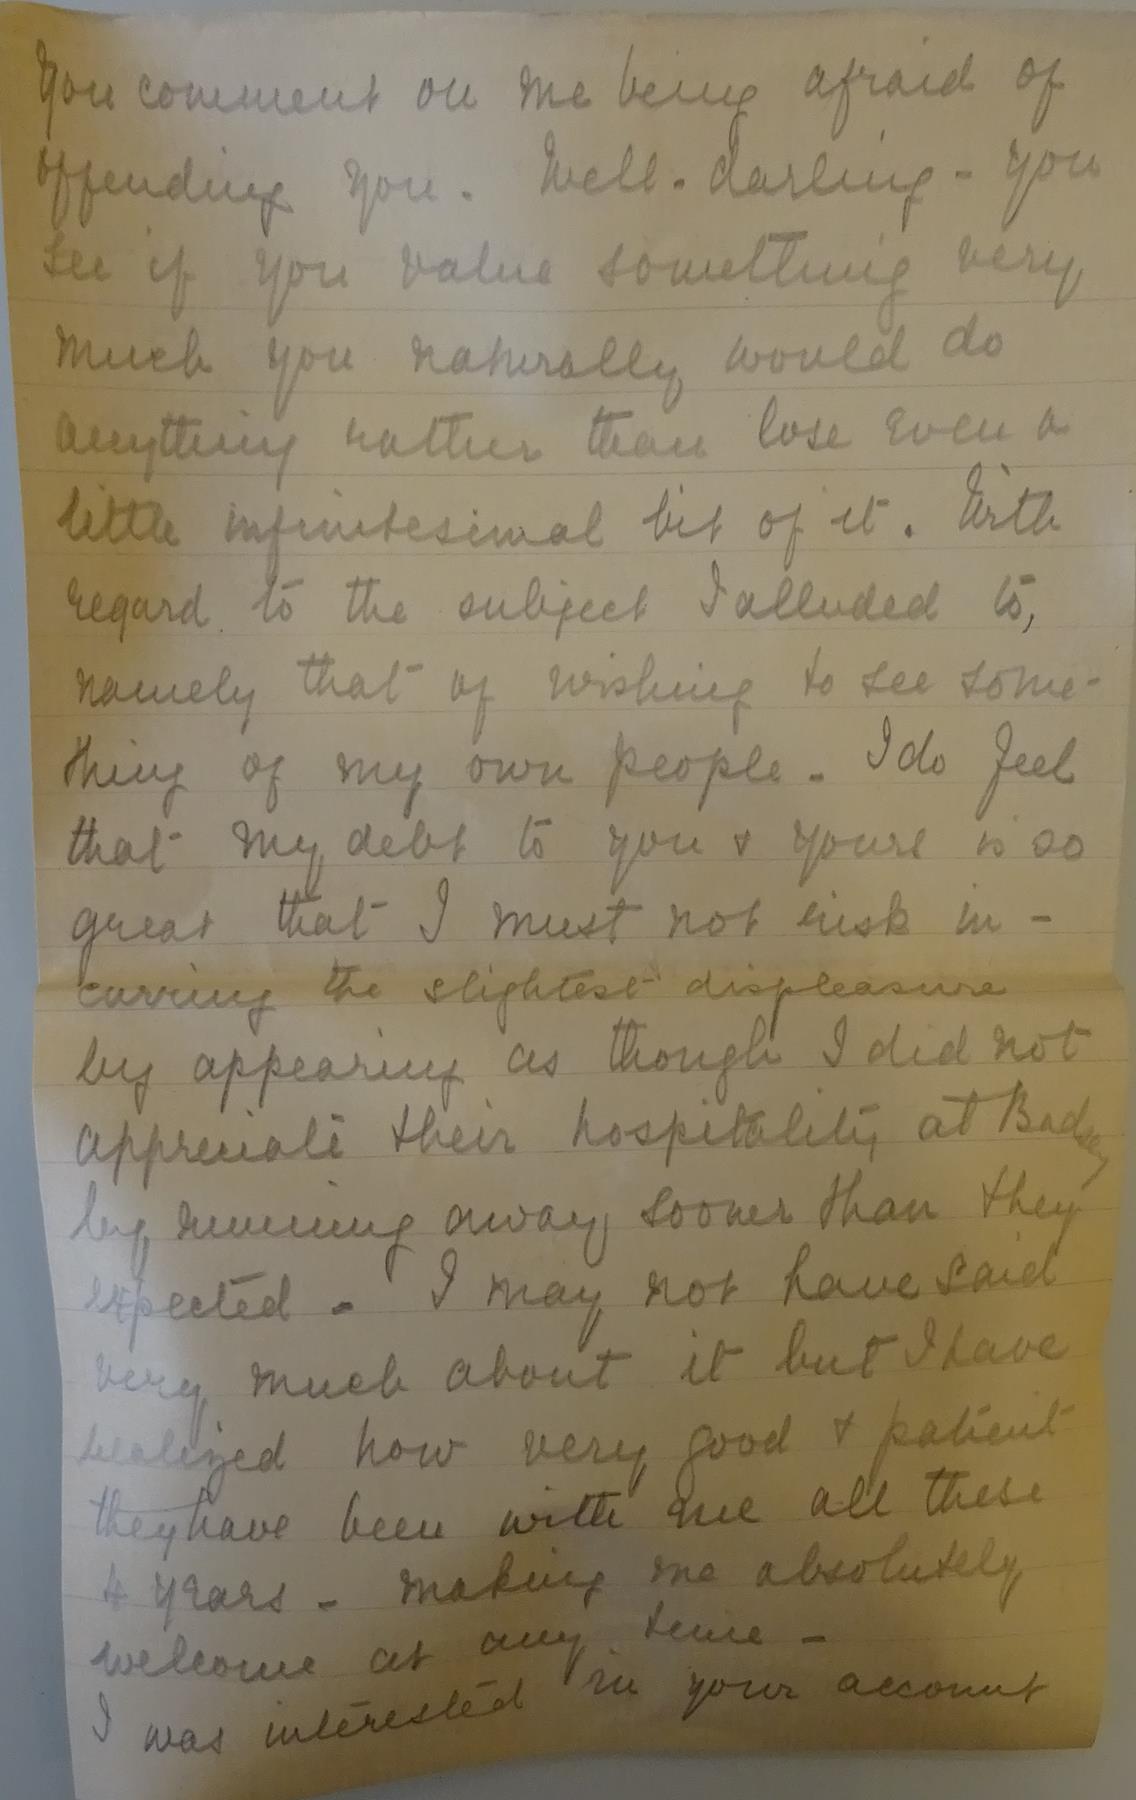 You comment on me being afraid of
offending you. Well - darling - you
see if you value something very
much you naturally would do
anything rather than lose even a
little infinitesimal bit of it. With
regard to the subject I alluded to,
namely that of wishing to see some-
thing of my own people - I do feel
that my debt to you & yours is so
great that I must not risk in-
curring the slightest displeasure
by appearing as though I did not
appreciate their hospitality at Badsey
by running away sooner than they
expected - I may not have said
very much about it but I have
realized how very good & patient
they have been with me all these
4 years - making me absolutely
welcome at any time -
I was interested in your account